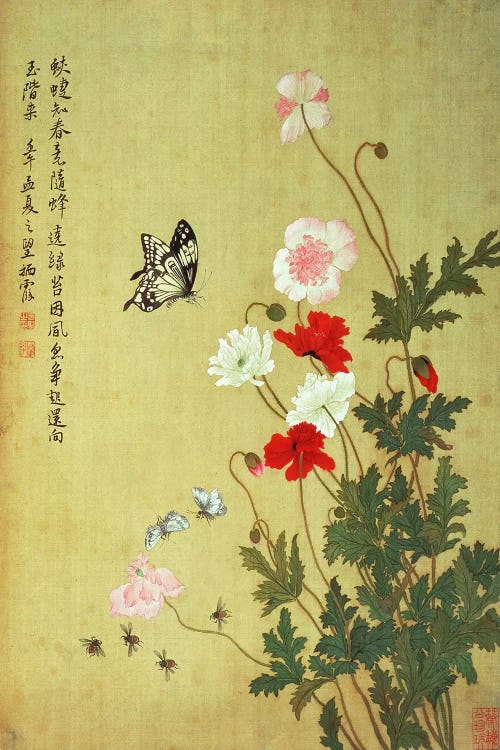 蛺蝶知春意隨蜂遶綠苔因風忽爭起還向
玉階來 壬午孟夏之望栖霞